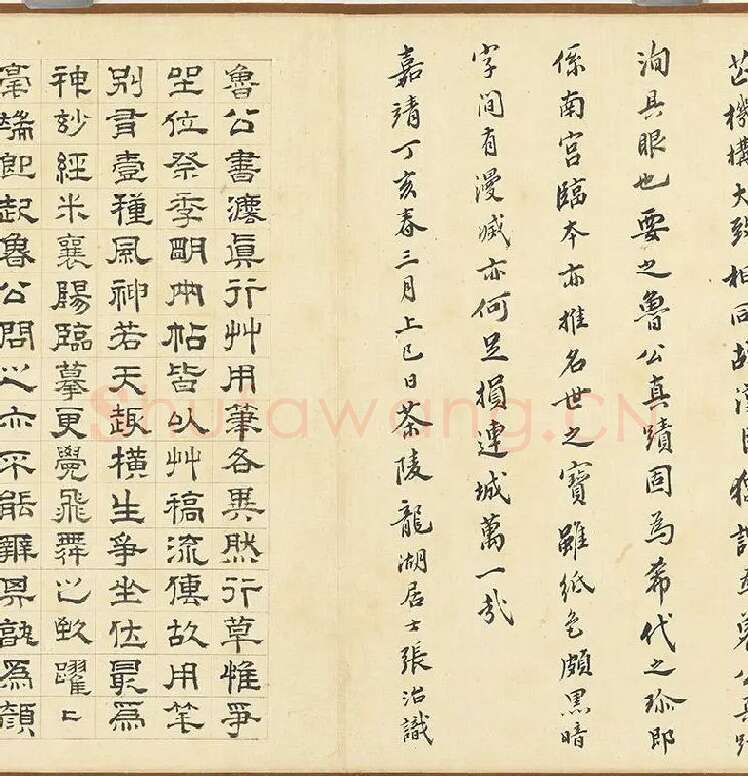 機構大致相同故
洵具眼也要之魯公真蹟固為希代之珍即
係南宮臨本亦推名世之寶雖紙色頗黑暗
字間有漫滅亦何足損連城萬一哉
嘉靖丁亥春三月上巳日茶陵龍湖居士張治識
魯公書灋眞行艸用筆各異然行草惟爭
坐位祭季朙兩帖皆以艸稿流傳故用筆
別有壹種風神若天趣橫生爭坐位最爲
神玅經米襄陽臨摹更覺飛舞之致躍〻
毫端即起魯公問之亦不能辨孰爲顏
Shufawang.CN